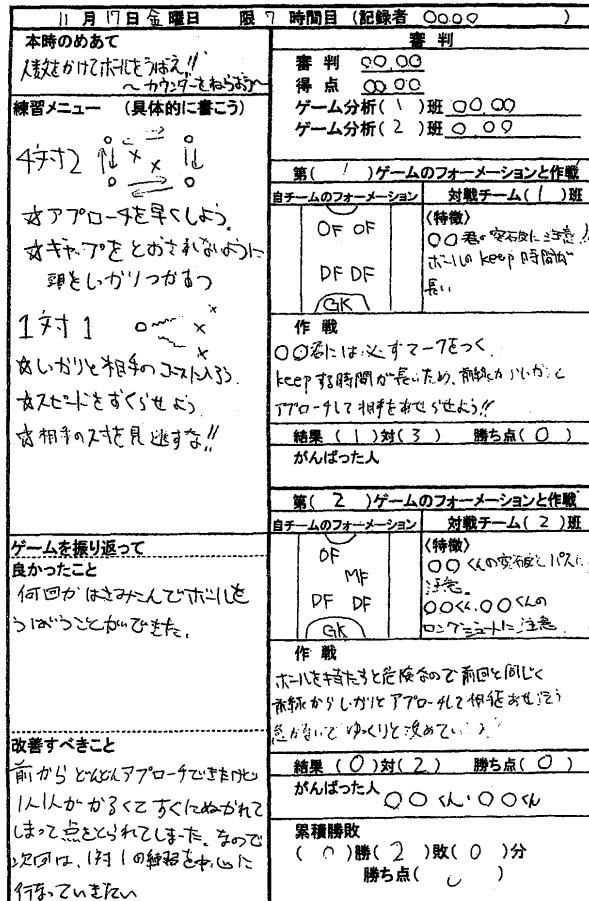 11月17日金曜日 限7時間目（記録者 〇〇〇〇 ）
本時のめあて
人数をかけてボールをうばえ!!
〜カウンターをねらおう〜
練習メニュー （具体的に書こう）
4対2
☆アプローチを早くしよう。
☆ギャップをとおされないように
頭をしっかりつかおう
1対1
☆しっかりと相手のコースに入ろう
☆スピードを
☆相手のスキを見逃すな!!
ゲームを振り返って
良かったこと
何回かはさみこんでボールを
うばうことができた。
改善すべきこと
前からどんどんアプローチできたけど
1人1人がかるくてすぐにぬかれて
しまって点をとられてしまった。なので
次回は、1対1の練習を中心に
行なっていきたい
審判
審判 〇〇,〇〇
得点 〇〇 〇〇
ゲーム分析（1）班 〇〇,〇〇
ゲーム分析（2）班 〇,〇〇
第（1）ゲームのフォーメーションと作戦
自チームのフォーメーション 対戦チーム（1）班
OF OF
DF DF
GK
〈特徴〉
〇〇君の突破に注意!!
ボールのkeep時間が
長い
作戦
〇〇君には必ずマークをつく。
keepする時間が長いため、前線からしっかりと
アプローチして相手をあせらせよう!!
結果（1）対（3） 勝ち点（0）
がんばった人
第（2）ゲームのフォーメーションと作戦
自チームのフォーメーション 対戦チーム（2）班
OF
MF
DF DF
GK
〈特徴〉
〇〇くんの突破とパスに
注意。
〇〇くん、〇〇くんの
ロングシュートに注意
作戦
ボールを持たすと危険なので前回と同じく
前線からしっかりとアプローチして
ゆっくりと攻めていこう!
結果（0）対（2） 勝ち点（0）
がんばった人 〇〇くん・〇〇くん
累積勝敗
（0）勝（2）敗（0）分
勝ち点（0）